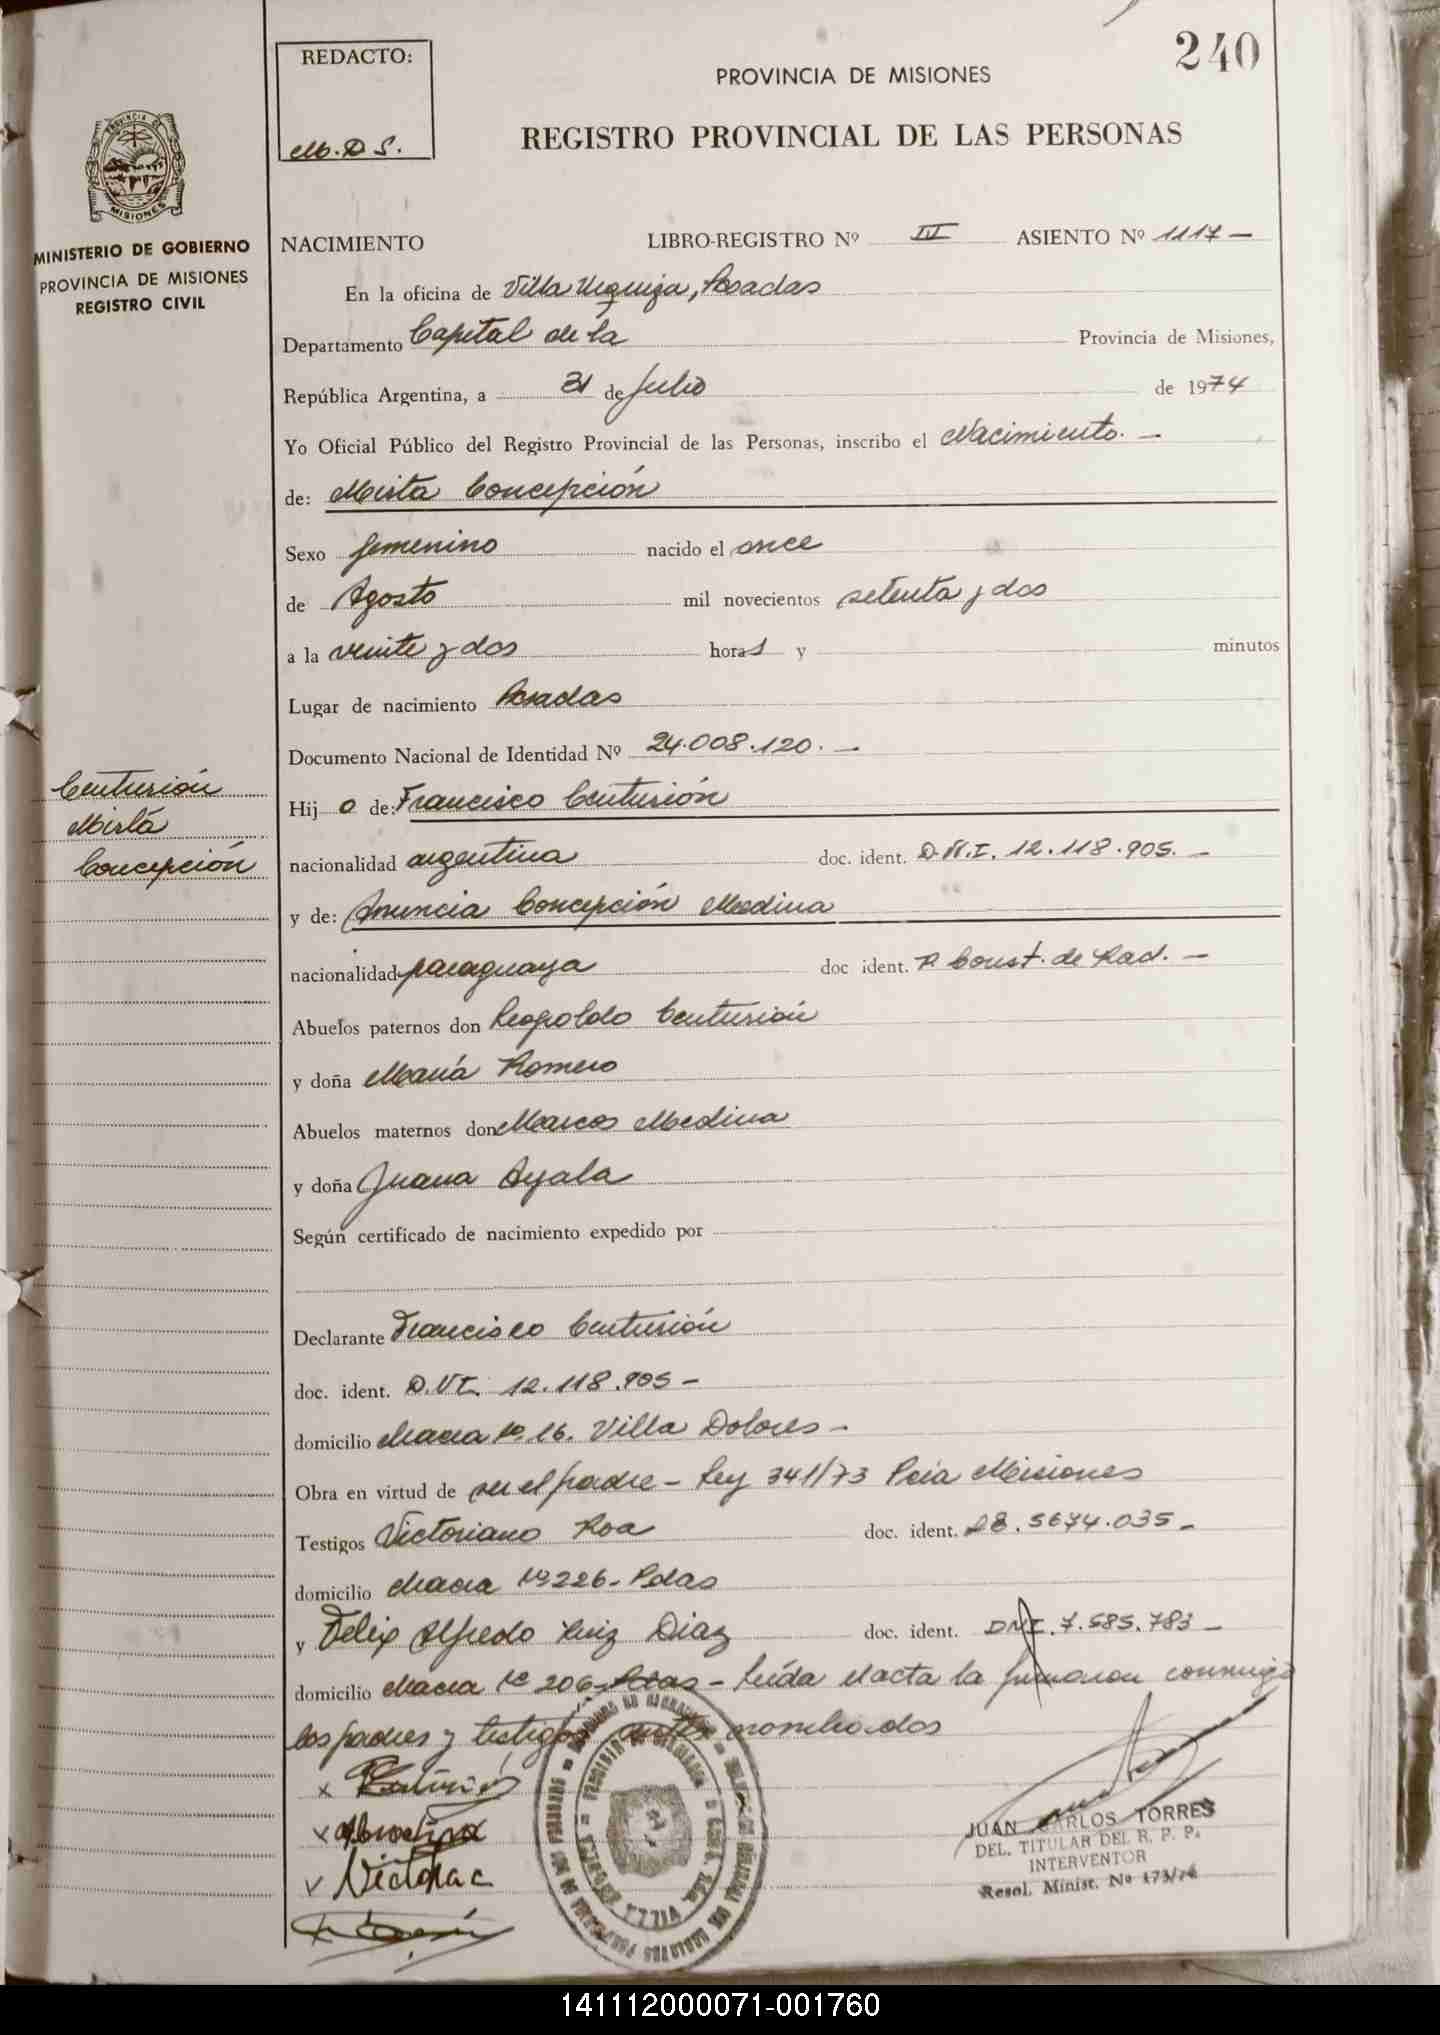 240
REDACTO:
M.D S.
PROVINCIA DE MISIONES
REGISTRO PROVINCIAL DE LAS PERSONAS
PROVINCIA DE
MISIONES
MINISTERIO DE GOBIERNO
PROVINCIA DE MISIONES
REGISTRO CIVIL
NACIMIENTO LIBRO-REGISTRO Nº IV ASIENTO Nº 1117 —
En la oficina de Villa Urquiza, Posadas
Departamento Capital de la Provincia de Misiones,
República Argentina, a 31 de Julio de 1974
Yo Oficial Público del Registro Provincial de las Personas, inscribo el Nacimiento. —
de: Mirta Concepción
Sexo femenino nacido el once
de Agosto mil novecientos setenta y dos
a la veinte y dos horas y minutos
Lugar de nacimiento Posadas
Documento Nacional de Identidad Nº 24.008.120. —
Centurión
Mirta
Concepción
Hij o de: Francisco Centurión
nacionalidad argentina doc. ident. D.N.I. 12.118.905. —
y de: Anuncia Concepción Medina
nacionalidad paraguaya doc ident. P. Const. de Rad. —
Abuelos paternos don Leopoldo Centurión
y doña María Romero
Abuelos maternos don Marcos Medina
y doña Juana Ayala
Según certificado de nacimiento expedido por
Declarante Francisco Centurión
doc. ident. D.NI. 12.118.905 —
domicilio chacra Nº 16. Villa Dolores —
Obra en virtud de ser el padre — Ley 341/73 Pcia Misiones
Testigos Victoriano Roa doc. ident. 5674.035 —
domicilio chacra Nº 226 - Pdas
y Felix Alfredo Ruiz Diaz doc. ident. DNI. 7.585.783 —
domicilio chacra Nº 206 - Pdas — Leída el acta la firmaron conmigo
los padres y testigos antes nombrados
JUAN CARLOS TORRES
DEL. TITULAR DEL R. P. P.
INTERVENTOR
Resol. Minist. Nº 173/74
141112000071-001760